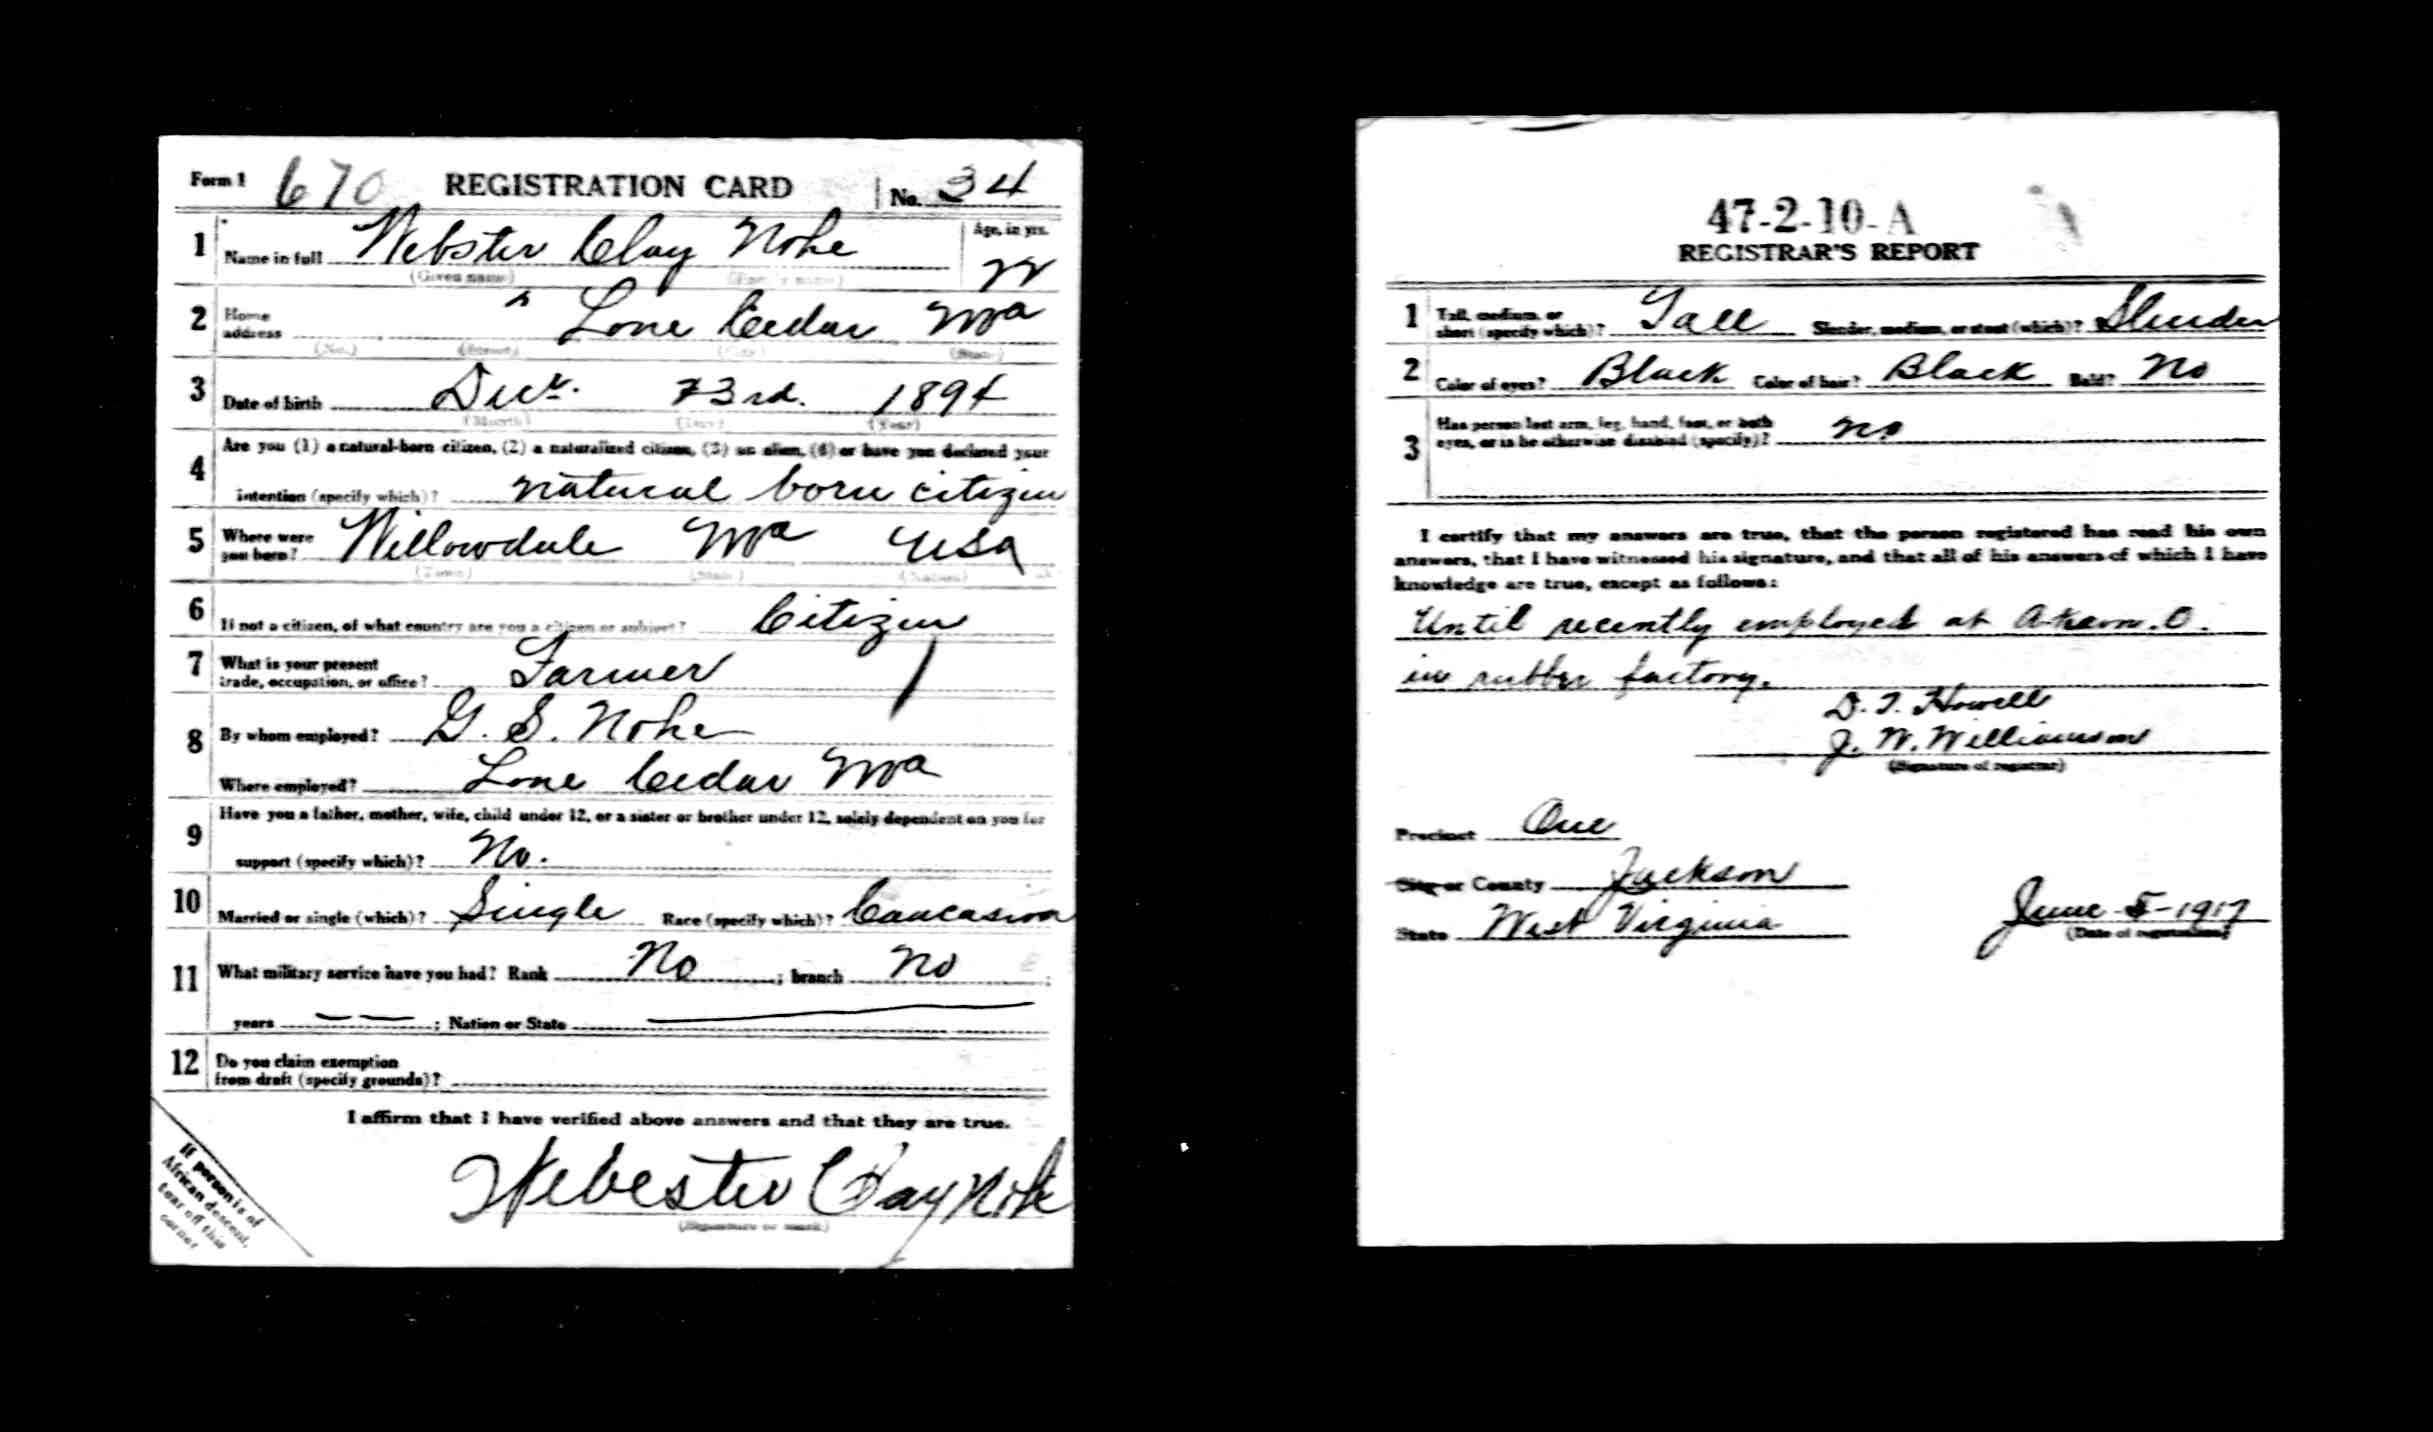 Form 1 670 REGISTRATION CARD No. 34
1 Name in full Webster Clay Nohe Age, in yrs.
(Given name) (Family name) 22
2 Home address Lone Cedar Wva
(No.) (Street) (City) (State)
3 Date of birth Dec. 23rd. 1894
(Month) (Day) (Year)
4 Are you (1) a natural-born citizen, (2) a naturalized citizen, (3) an alien, (4) or have you declared your
intention (specify which)? natural born citizen
5 Where were you born? Willowdale Wva USA
(Town) (State) (Nation)
6 If not a citizen, of what country are you a citizen or subject? Citizen
7 What is your present trade, occupation, or office? Farmer
8 By whom employed? G. S. Nohe
Where employed? Lone Cedar Wva
9 Have you a father, mother, wife, child under 12, or a sister or brother under 12, solely dependent on you for
support (specify which)? No.
10 Married or single (which)? Single Race (specify which)? Caucasion
11 What military service have you had? Rank No ; branch No ;
years — — ; Nation or State
12 Do you claim exemption from draft (specify grounds)?
I affirm that I have verified above answers and that they are true.
Webester Clay Nohe
(Signature or mark)
If person is of
African descent,
tear off this
corner
47-2-10-A
REGISTRAR'S REPORT
1 Tall, medium, or short (specify which)? Tall Slender, medium, or stout (which)? Slender
2 Color of eyes? Black Color of hair? Black Bald? No
3 Has person lost arm, leg, hand, foot, or both eyes, or is he otherwise disabled (specify)? no
I certify that my answers are true, that the person registered has read his own
answers, that I have witnessed his signature, and that all of his answers of which I have
knowledge are true, except as follows:
Until recently employed at Akron. O.
in rubber factory.
D. T. Howell
J. W. Williamson
(Signature of registrar)
Precinct One
City or County Jackson
State West Virginia June 5-1917
(Date of registration)